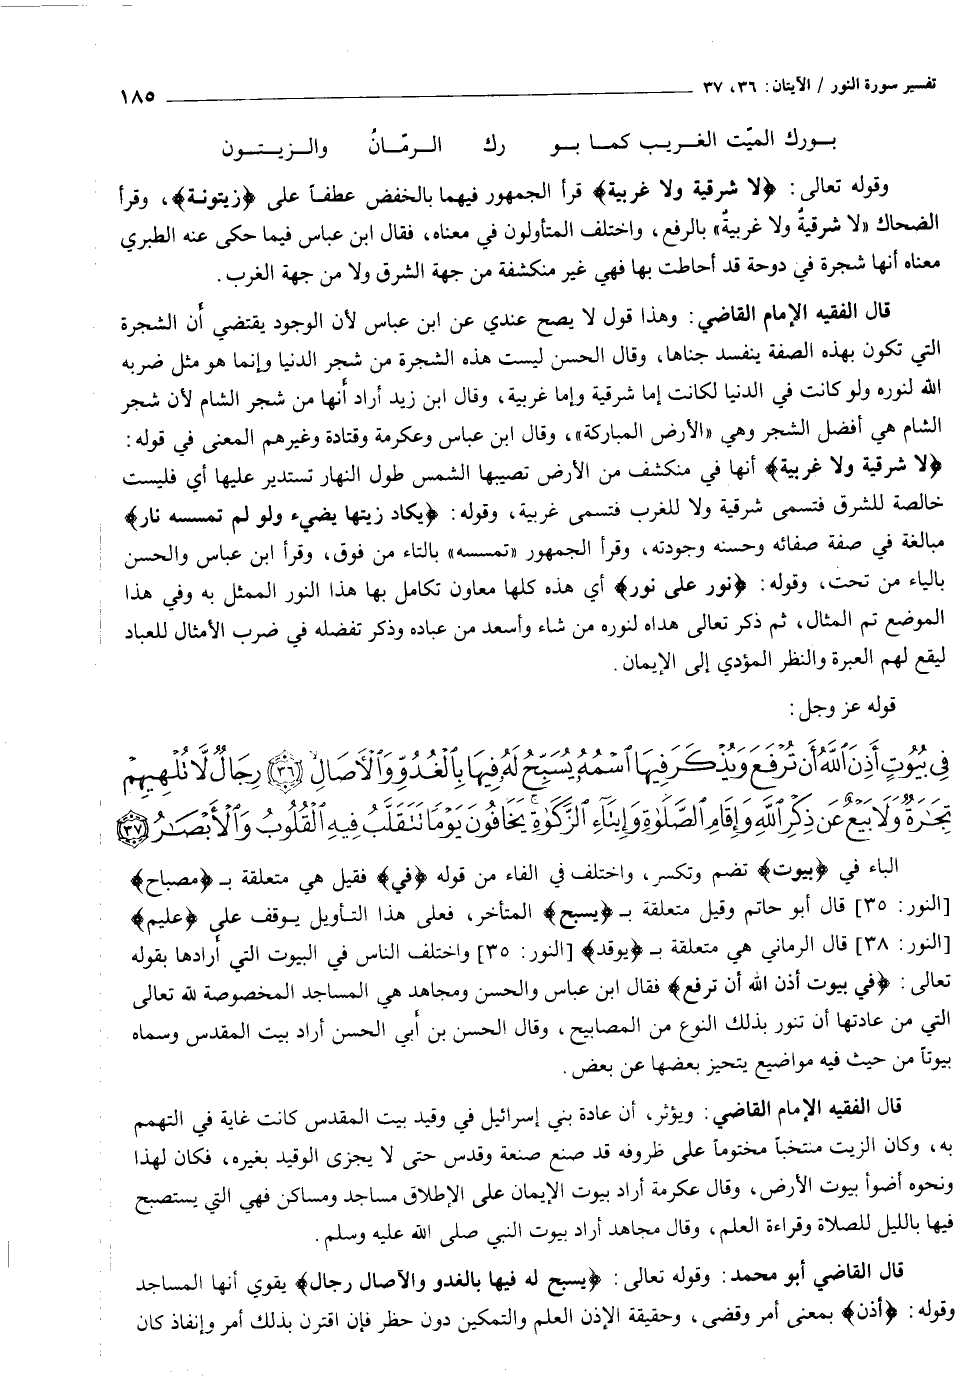 تفسير سورة النور / الآيتان: ٣٦، ٣٧ ١٨٥
بـورك الميّت الغـريب كمـا بـو رك الـرمّـانُ والـزيـتـون
وقوله تعالى: ﴿لا شرقية ولا غربية﴾ قرأ الجمهور فيهما بالخفض عطفاً على ﴿زيتونة﴾، وقرأ
الضحاك «لا شرقيةٌ ولا غربيةٌ» بالرفع، واختلف المتأولون في معناه، فقال ابن عباس فيما حكى عنه الطبري
معناه أنها شجرة في دوحة قد أحاطت بها فهي غير منكشفة من جهة الشرق ولا من جهة الغرب.
قال الفقيه الإمام القاضي: وهذا قول لا يصح عندي عن ابن عباس لأن الوجود يقتضي أن الشجرة
التي تكون بهذه الصفة ينفسد جناها، وقال الحسن ليست هذه الشجرة من شجر الدنيا وإنما هو مثل ضربه
الله لنوره ولو كانت في الدنيا لكانت إما شرقية وإما غربية، وقال ابن زيد أراد أنها من شجر الشام لأن شجر
الشام هي أفضل الشجر وهي «الأرض المباركة»، وقال ابن عباس وعكرمة وقتادة وغيرهم المعنى في قوله:
﴿لا شرقية ولا غربية﴾ أنها في منكشف من الأرض تصيبها الشمس طول النهار تستدير عليها أي فليست
خالصة للشرق فتسمى شرقية ولا للغرب فتسمى غربية، وقوله: ﴿يكاد زيتها يضيء ولو لم تمسسه نار﴾
مبالغة في صفة صفائه وحسنه وجودته، وقرأ الجمهور «تمسسه» بالتاء من فوق، وقرأ ابن عباس والحسن
بالياء من تحت، وقوله: ﴿نور على نور﴾ أي هذه كلها معاون تكامل بها هذا النور الممثل به وفي هذا
الموضع تم المثال، ثم ذكر تعالى هداه لنوره من شاء وأسعد من عباده وذكر تفضله في ضرب الأمثال للعباد
ليقع لهم العبرة والنظر المؤدي إلى الإيمان.
قوله عز وجل:
فِي بُيُوتٍ أَذِنَ ٱللَّهُ أَن تُرۡفَعَ وَيُذۡكَرَ فِيهَا ٱسۡمُهُۥ يُسَبِّحُ لَهُۥ فِيهَا بِٱلۡغُدُوِّ وَٱلۡأٓصَالِ ﴿٣٦﴾ رِجَالٞ لَّا تُلۡهِيهِمۡ
تِجَٰرَةٞ وَلَا بَيۡعٌ عَن ذِكۡرِ ٱللَّهِ وَإِقَامِ ٱلصَّلَوٰةِ وَإِيتَآءِ ٱلزَّكَوٰةِ يَخَافُونَ يَوۡمٗا تَتَقَلَّبُ فِيهِ ٱلۡقُلُوبُ وَٱلۡأَبۡصَٰرُ ﴿٣٧﴾
الباء في ﴿بيوت﴾ تضم وتكسر، واختلف في الفاء من قوله ﴿في﴾ فقيل هي متعلقة بـ ﴿مصباح﴾
[النور: ٣٥] قال أبو حاتم وقيل متعلقة بـ ﴿يسبح﴾ المتأخر، فعلى هذا التأويل يوقف على ﴿عليم﴾
[النور: ٣٨] قال الرماني هي متعلقة بـ ﴿يوقد﴾ [النور: ٣٥] واختلف الناس في البيوت التي أرادها بقوله
تعالى: ﴿في بيوت أذن الله أن ترفع﴾ فقال ابن عباس والحسن ومجاهد هي المساجد المخصوصة لله تعالى
التي من عادتها أن تنور بذلك النوع من المصابيح، وقال الحسن بن أبي الحسن أراد بيت المقدس وسماه
بيوتاً من حيث فيه مواضيع يتحيز بعضها عن بعض.
قال الفقيه الإمام القاضي: ويؤثر، أن عادة بني إسرائيل في وقيد بيت المقدس كانت غاية في التهمم
به، وكان الزيت منتخباً مختوماً على ظروفه قد صنع صنعة وقدس حتى لا يجزى الوقيد بغيره، فكان لهذا
ونحوه أضوأ بيوت الأرض، وقال عكرمة أراد بيوت الإيمان على الإطلاق مساجد ومساكن فهي التي يستصبح
فيها بالليل للصلاة وقراءة العلم، وقال مجاهد أراد بيوت النبي صلى الله عليه وسلم.
قال القاضي أبو محمد: وقوله تعالى: ﴿يسبح له فيها بالغدو والآصال رجال﴾ يقوي أنها المساجد
وقوله: ﴿أذن﴾ بمعنى أمر وقضى، وحقيقة الإذن العلم والتمكين دون حظر فإن اقترن بذلك أمر وإنفاذ كان